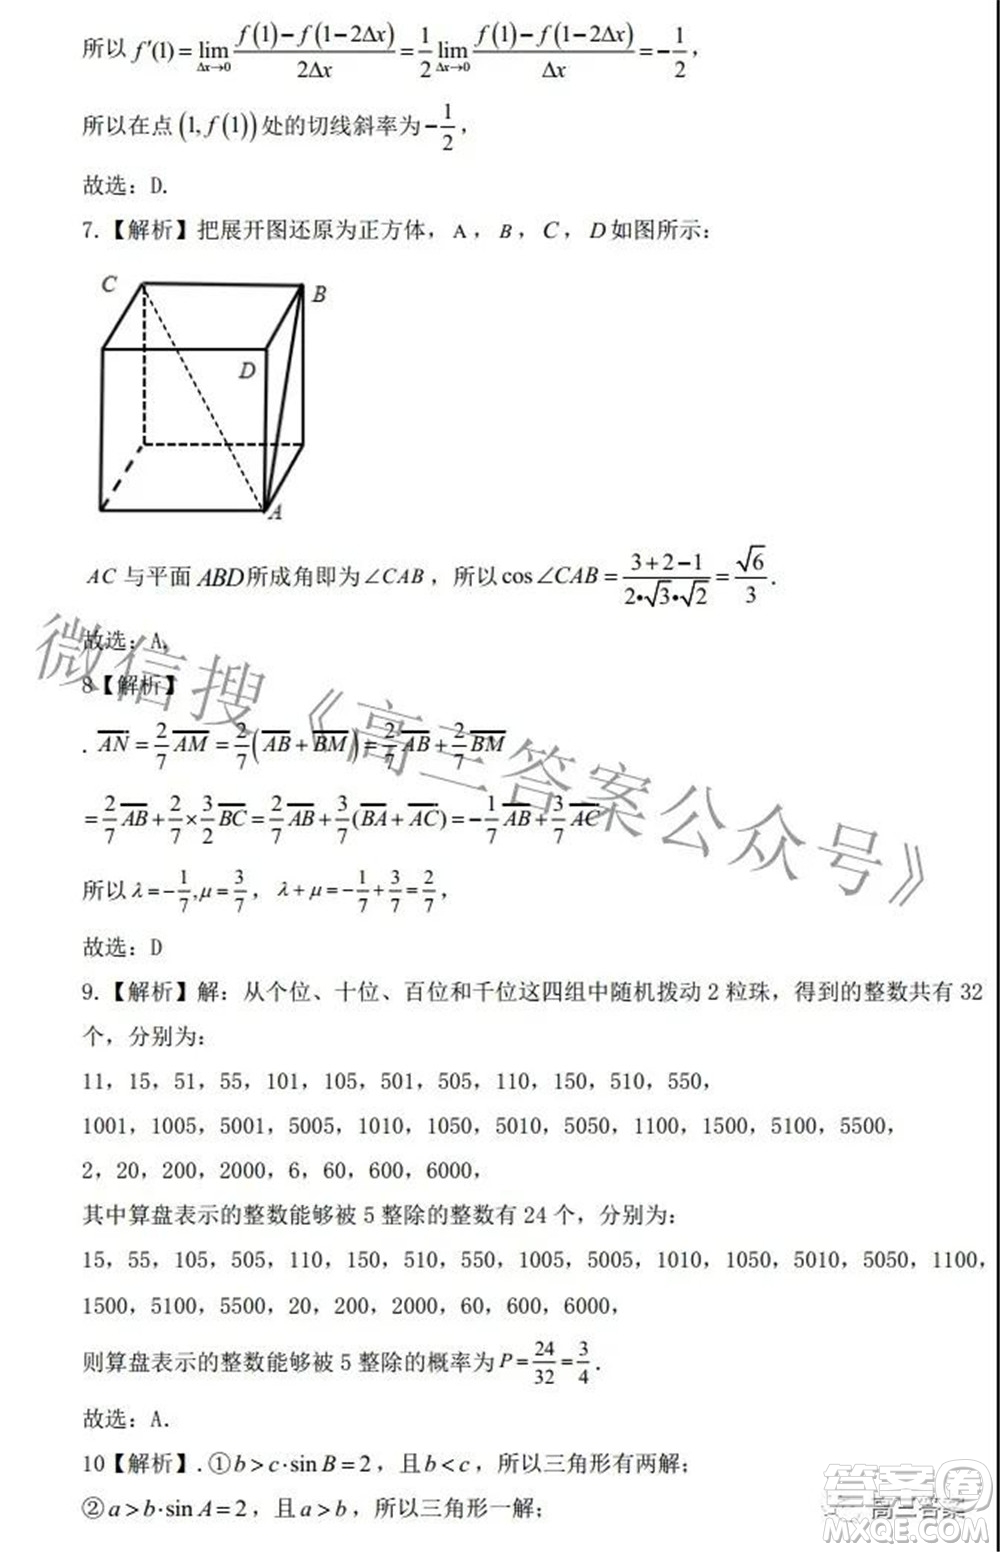 所以 f′(1)=lim(Δx→0) (f(1)−f(1−2Δx))/(2Δx)=1/2 lim(Δx→0) (f(1)−f(1−2Δx))/Δx=−1/2，
所以在点(1,f(1))处的切线斜率为−1/2，
故选：D.
7.【解析】把展开图还原为正方体，A，B，C，D如图所示：
C
B
D
A
AC与平面ABD所成角即为∠CAB，所以cos∠CAB=(3+2−1)/(2•√3•√2)=√6/3.
故选：A.
8【解析】
. AN=2/7 AM=2/7(AB+BM)=2/7 AB+2/7 BM
=2/7 AB+2/7×3/2 BC=2/7 AB+3/7(BA+AC)=−1/7 AB+3/7 AC
所以λ=−1/7,μ=3/7，λ+μ=−1/7+3/7=2/7，
故选：D
9.【解析】解：从个位、十位、百位和千位这四组中随机拨动2粒珠，得到的整数共有32
个，分别为：
11，15，51，55，101，105，501，505，110，150，510，550，
1001，1005，5001，5005，1010，1050，5010，5050，1100，1500，5100，5500，
2，20，200，2000，6，60，600，6000，
其中算盘表示的整数能够被5整除的整数有24个，分别为：
15，55，105，505，110，150，510，550，1005，5005，1010，1050，5010，5050，1100，
1500，5100，5500，20，200，2000，60，600，6000，
则算盘表示的整数能够被5整除的概率为P=24/32=3/4.
故选：A.
10【解析】.①b>c·sinB=2，且b<c，所以三角形有两解；
②a>b·sinA=2，且a>b，所以三角形一解；
微信搜《高三答案公众号》
高三答案
答案圈
MXQE.COM